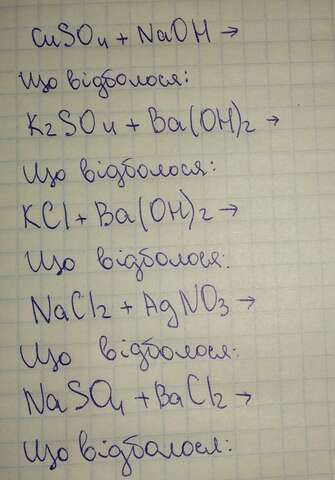 CuSO4 + NaOH →
Що відболося:
K2SO4 + Ba(OH)2 →
Що відболося:
KCl + Ba(OH)2 →
Що відболося:
NaCl2 + AgNO3 →
Що відболося:
NaSO4 + BaCl2 →
Що відболося: